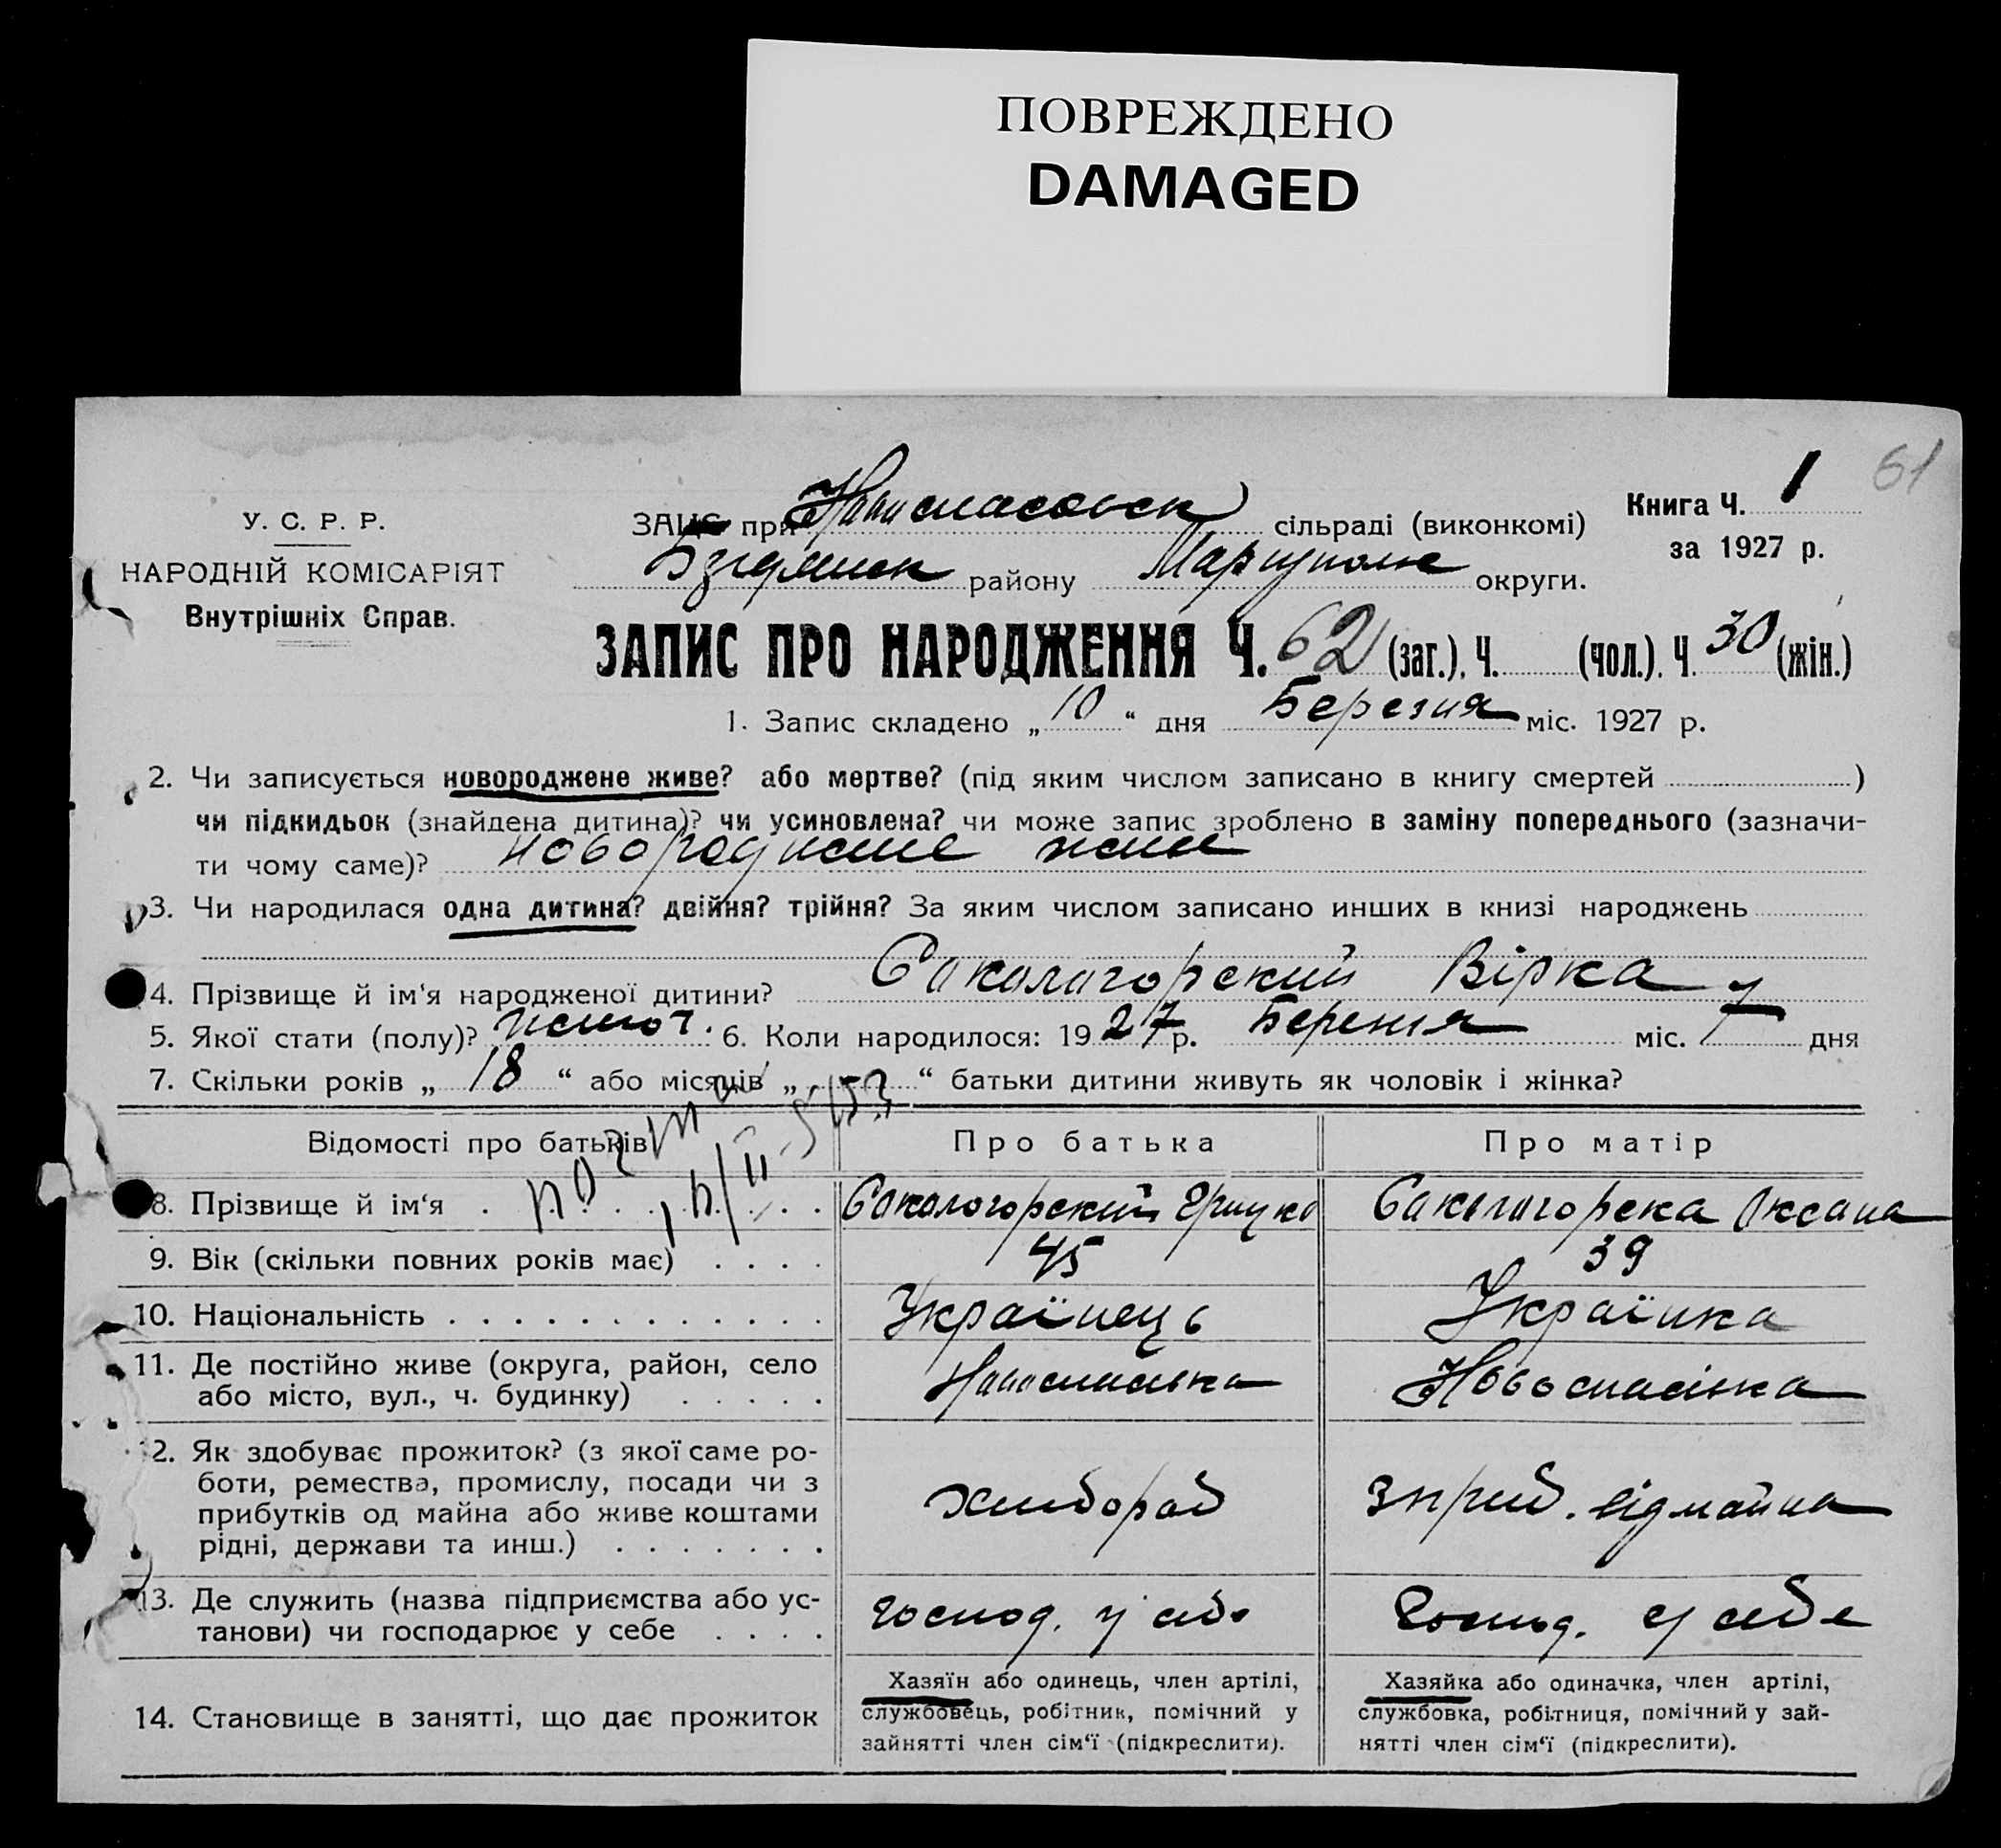 ПОВРЕЖДЕНО
DAMAGED
61
У. С. Р. Р.
НАРОДНІЙ КОМІСАРІЯТ
Внутрішніх Справ.
ЗАЦС при сільраді (виконкомі)
району округи.
Книга Ч. 1
за 1927 р.
ЗАПИС ПРО НАРОДЖЕННЯ Ч. 62 (заг.), Ч. (чол.). Ч. 30 (жін.)
1. Запис складено „ 10 “ дня Березня міс. 1927 р.
2. Чи записується новороджене живе? або мертве? (під яким числом записано в книгу смертей )
чи підкидьок (знайдена дитина)? чи усиновлена? чи може запис зроблено в заміну попереднього (зазначи-
ти чому саме)?
3. Чи народилася одна дитина? двійня? трійня? За яким числом записано инших в книзі народжень
4. Прізвище й ім'я народженої дитини? Сокологорский Вірка
5. Якої стати (полу)? 6. Коли народилося: 1927 р. Березня міс. 7 дня
7. Скільки років „ 18 “ або місяців „ “ батьки дитини живуть як чоловік і жінка?
Відомості про батьків Про батька Про матір
8. Прізвище й ім‘я Сокологорский Грицко Сокологорска Оксана
9. Вік (скільки повних років має) 45 39
10. Національність Українець Українка
11. Де постійно живе (округа, район, село
або місто, вул., ч. будинку) Новоспасівка Новоспасівка
12. Як здобуває прожиток? (з якої саме ро-
боти, ремества, промислу, посади чи з
прибутків од майна або живе коштами
рідні, держави та инш.) Хлібороб з приб. від майна
13. Де служить (назва підприємства або ус-
танови) чи господарює у себе господ. у себе господ. у себе
14. Становище в занятті, що дає прожиток
Хазяїн або одинець, член артілі,
службовець, робітник, помічний у
зайнятті член сім‘ї (підкреслити).
Хазяйка або одиначка, член артілі,
службовка, робітниця, помічний у зай-
нятті член сім‘ї (підкреслити).